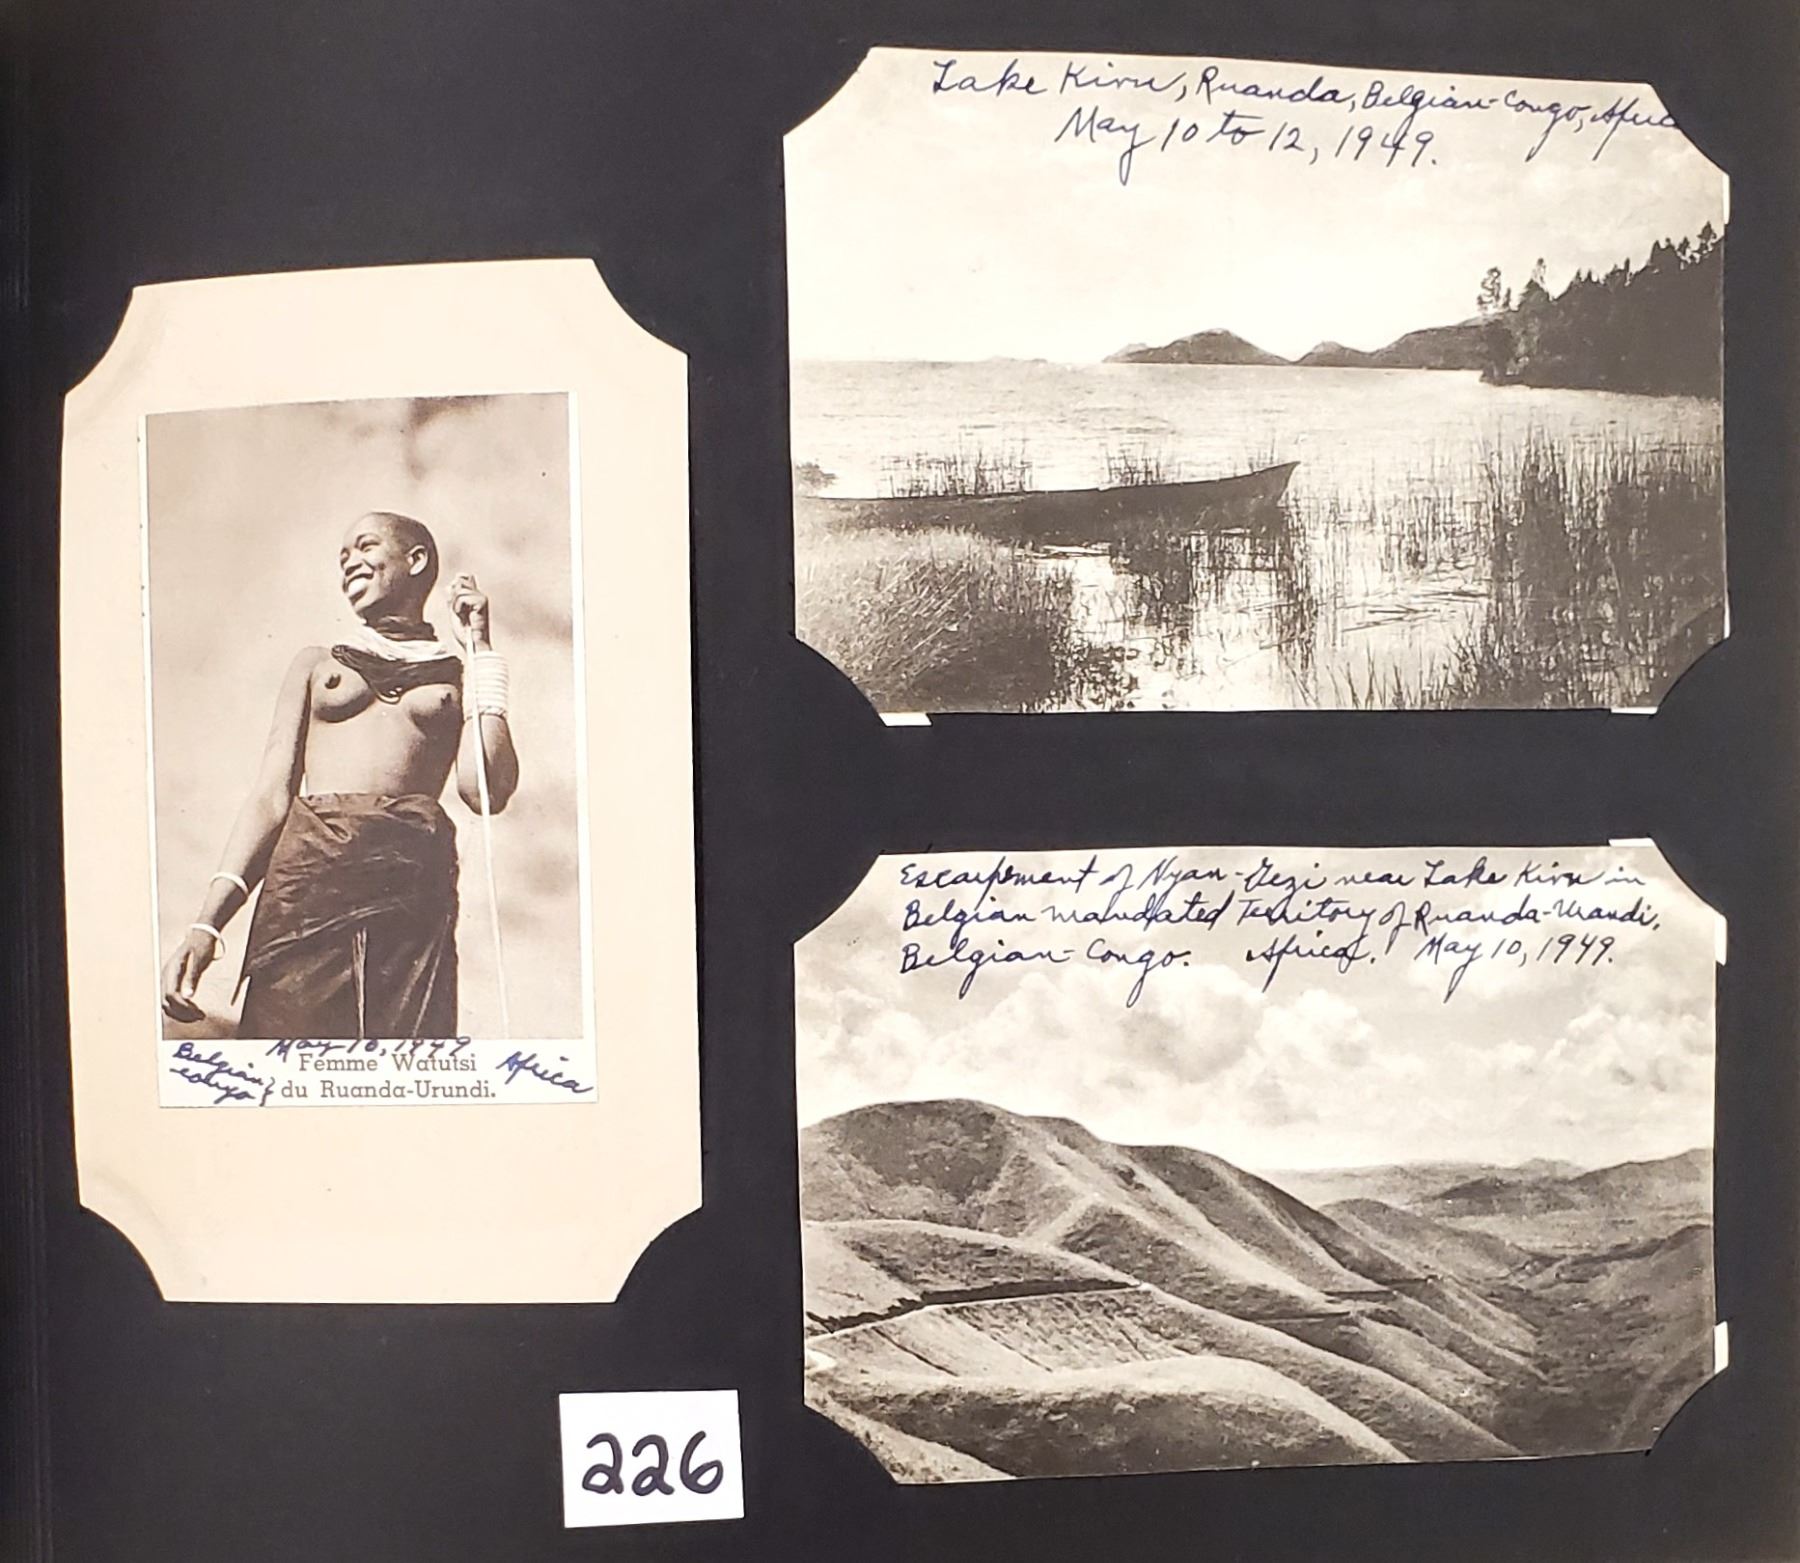 Lake Kivu, Ruanda, Belgian-Congo, Africa
May 10 to 12, 1949.
May 10, 1949
Belgian Congo
Femme Watutsi
Africa
du Ruanda-Urundi.
Escarpement of Nyan-Gezi near Lake Kivu in
Belgian mandated Territory of Ruanda-Urundi,
Belgian-Congo. Africa. May 10, 1949.
226